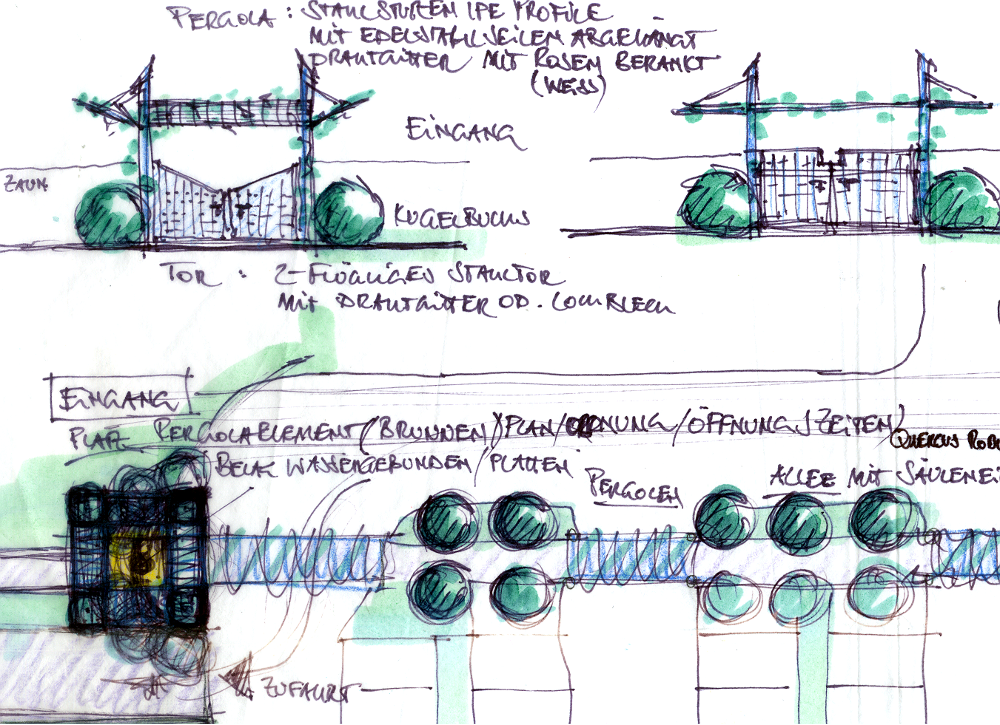 PERGOLA : STAHLSTÜTZEN IPE PROFILE
MIT EDELSTAHLSEILEN ABGEHÄNGT
DRAHTGITTER MIT ROSEN BERANKT
(WEISS)
EINGANG
ZAUN
KUGELBUCHS
TOR : 2-FLÜGLIGES STAHLTOR
MIT DRAHTGITTER OD. LOCHBLECH
EINGANG
PLATZ PERGOLAELEMENT (BRUNNEN) PLAN/ORDNUNG/ÖFFNUNGSZEITEN)
QUERCUS ROB
BELAG WASSERGEBUNDEN/PLATTEN
PERGOLEN
ALLEE MIT SÄULENEI
ZUFAHRT